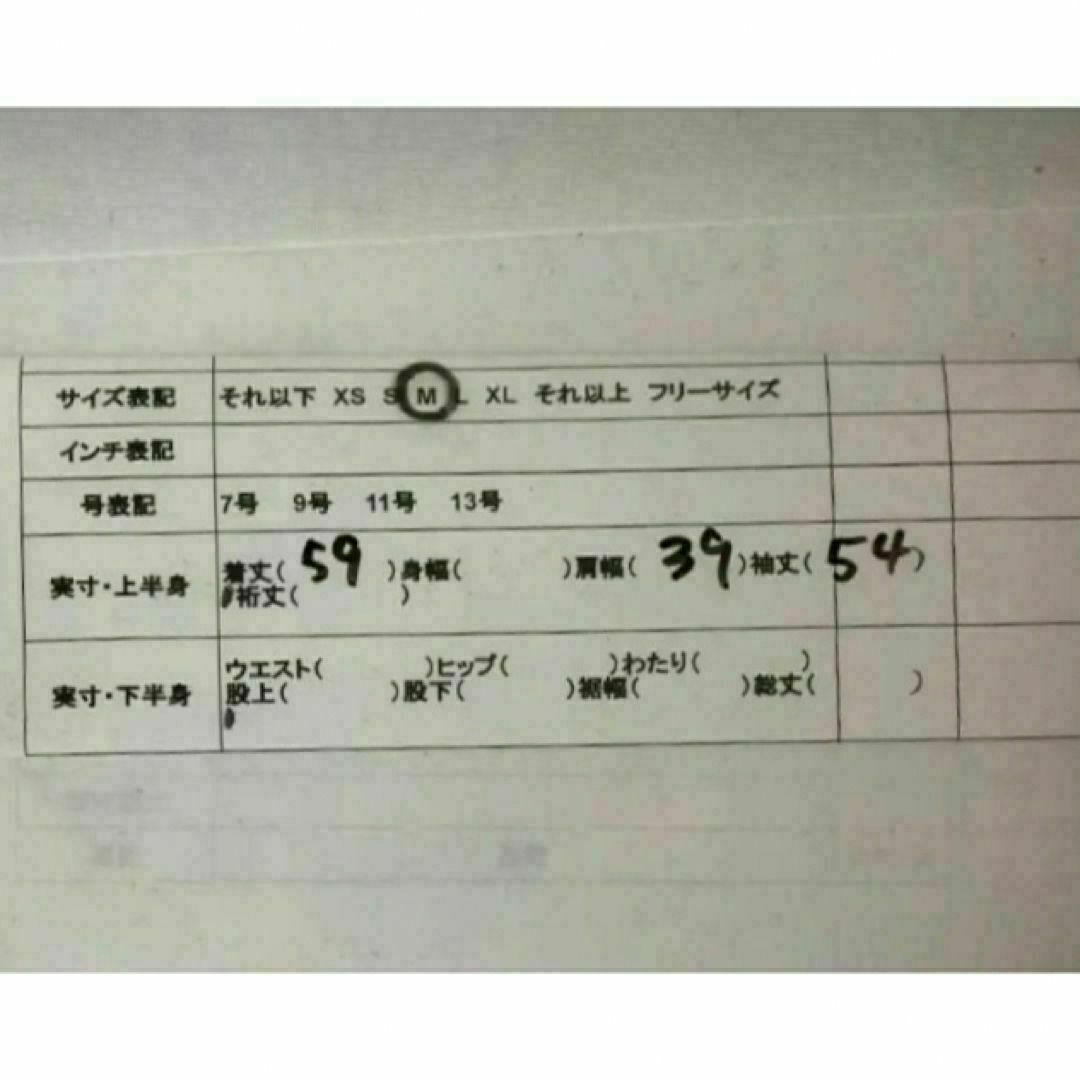 サイズ表記 それ以下 XS S M L XL それ以上 フリーサイズ
インチ表記
号表記 7号 9号 11号 13号
実寸・上半身 着丈( 59 )身幅( )肩幅( 39 )袖丈( 54 )
裄丈( )
実寸・下半身 ウエスト( )ヒップ( )わたり( )
股上( )股下( )裾幅( )総丈( )